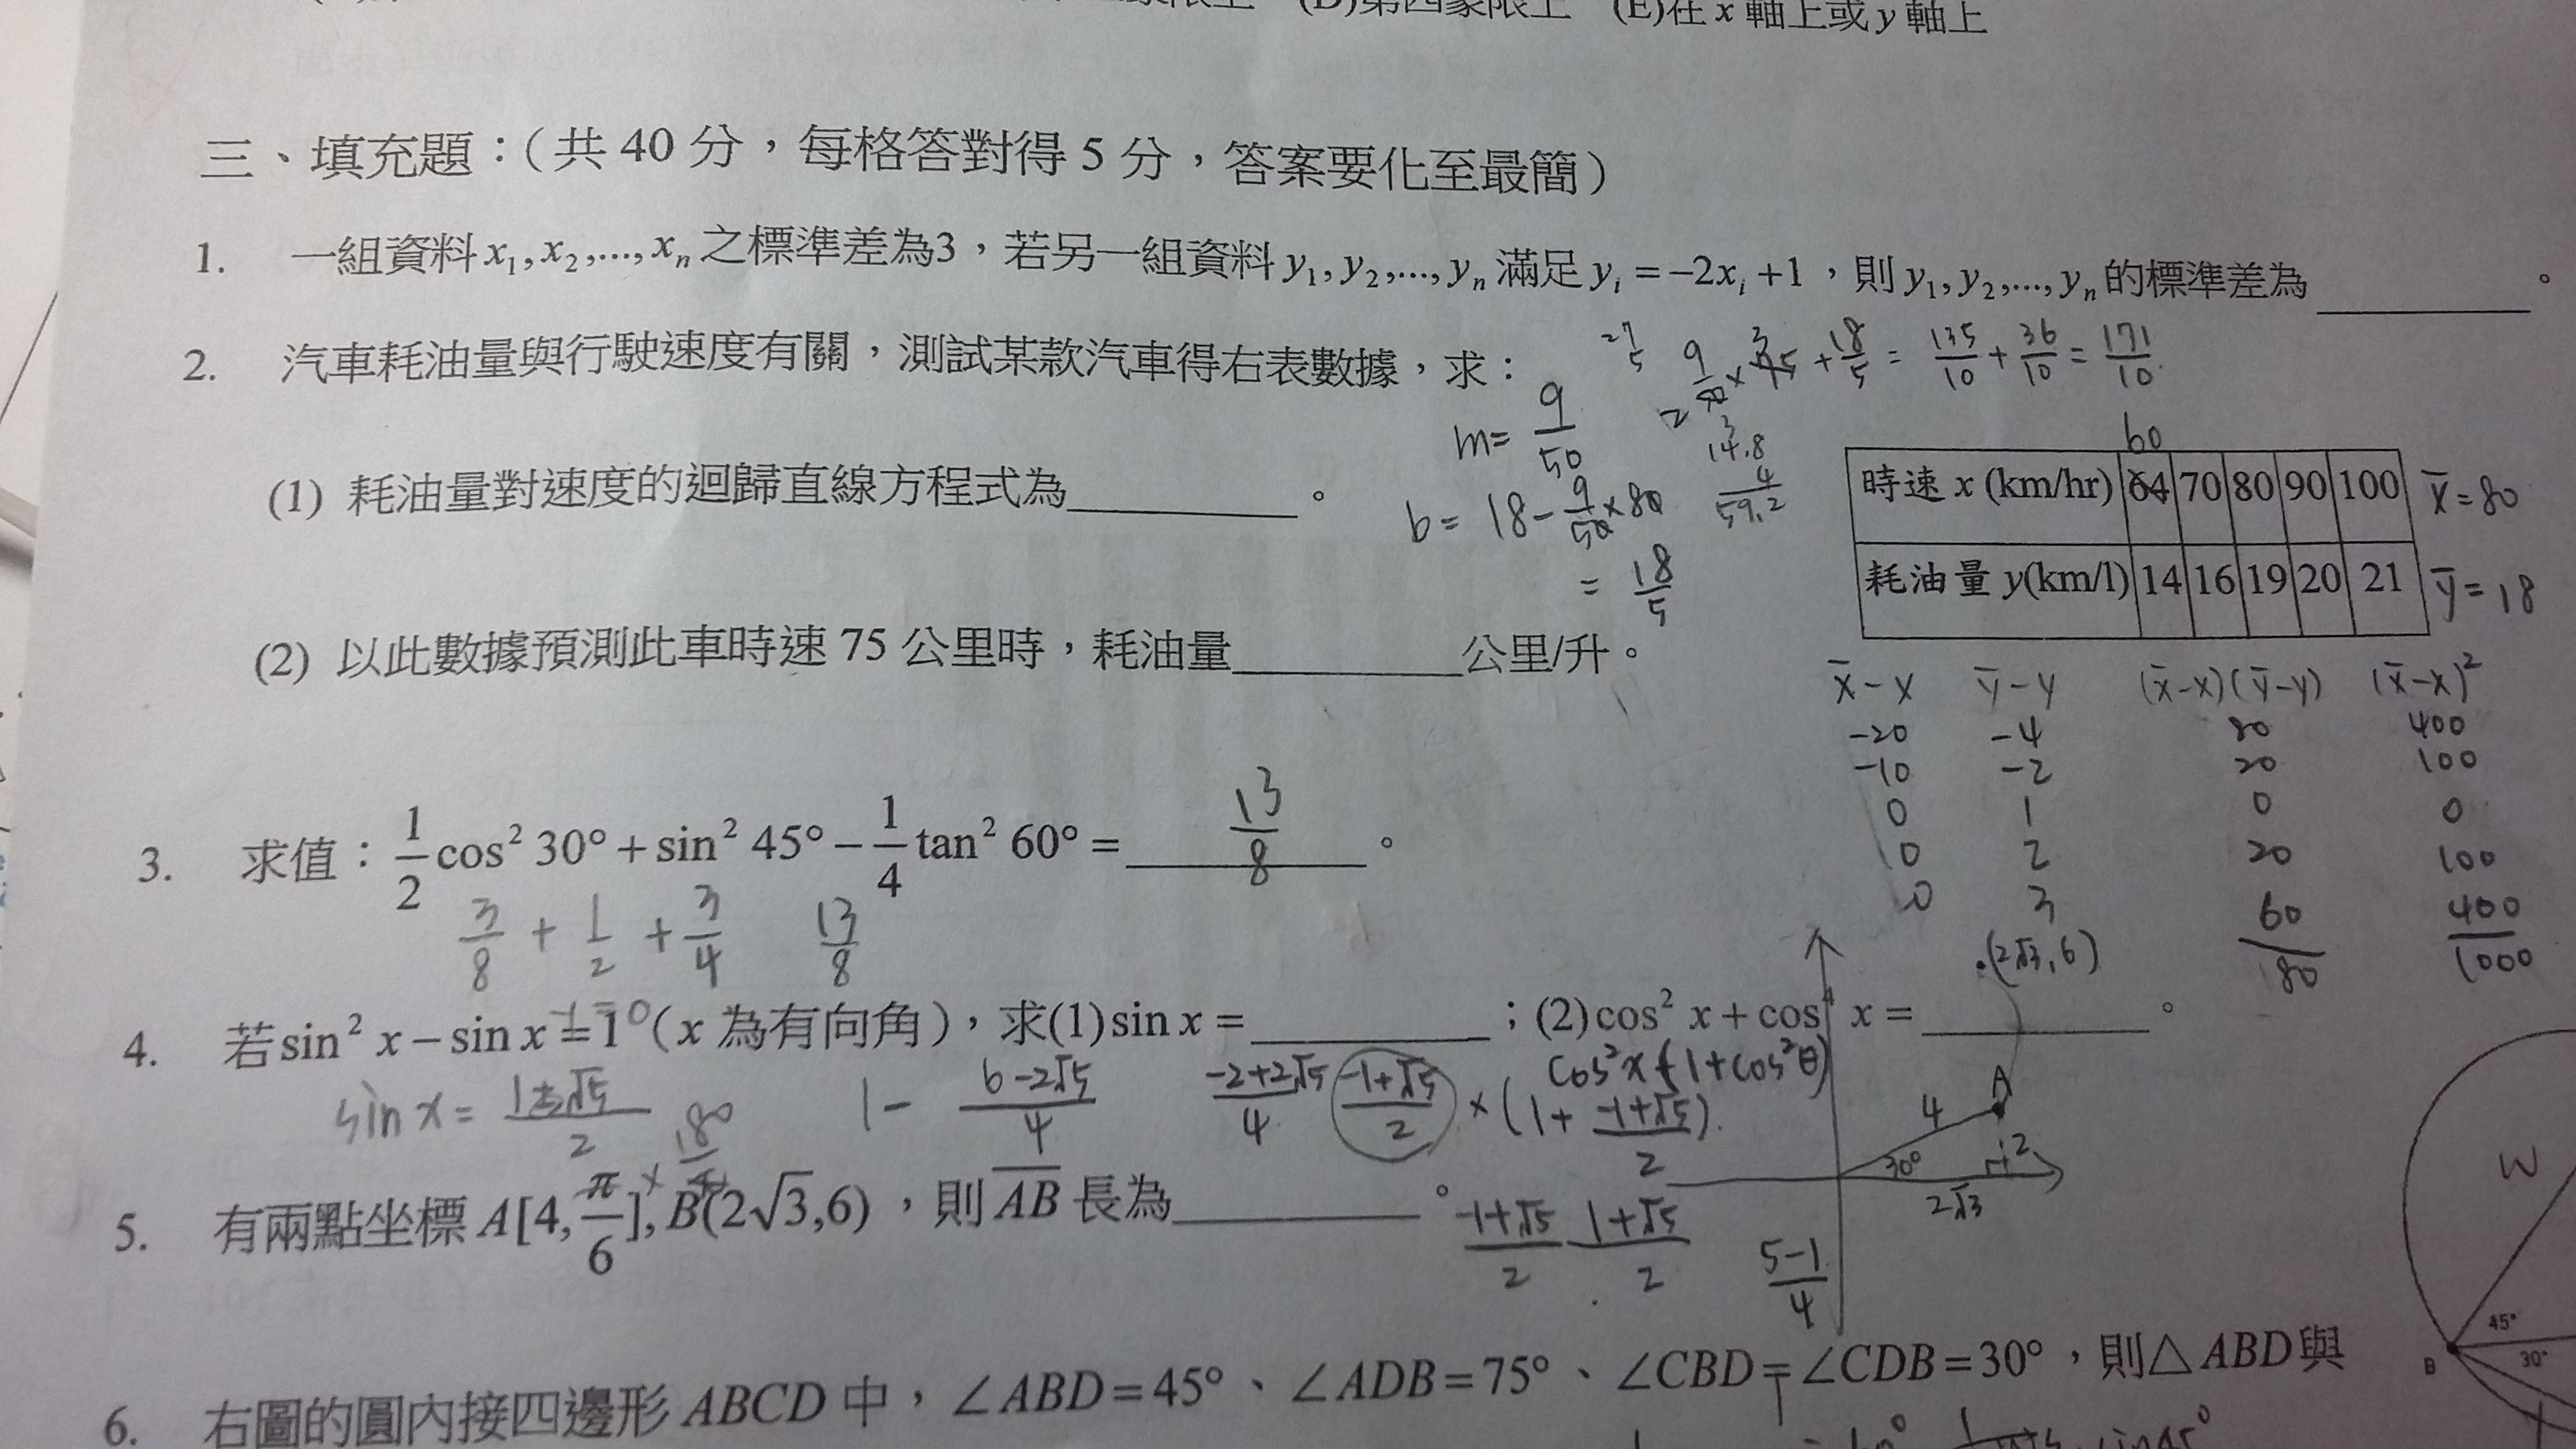 (D)第四象限上 (E)在 x 軸上或 y 軸上
三、填充題：（共 40 分，每格答對得 5 分，答案要化至最簡）
1. 一組資料 x₁, x₂,..., xₙ 之標準差為3，若另一組資料 y₁, y₂,..., yₙ 滿足 yᵢ = −2xᵢ +1，則 y₁, y₂,..., yₙ 的標準差為________。
2. 汽車耗油量與行駛速度有關，測試某款汽車得右表數據，求：
27/5 9/50 × 75 + 18/5 = 135/10 + 36/10 = 171/10
m= 9/50
3
14.8
4
59.2
(1) 耗油量對速度的迴歸直線方程式為________。
b = 18 − 9/50 × 80
= 18/5
60
時速 x (km/hr) 64 70 80 90 100 x̄ = 80
耗油量 y(km/l) 14 16 19 20 21 ȳ = 18
(2) 以此數據預測此車時速 75 公里時，耗油量________公里/升。
x̄−x ȳ−y (x̄−x)(ȳ−y) (x̄−x)²
−20 −4 80 400
−10 −2 20 100
0 1 0 0
10 2 20 100
0 3 60 400
180 1000
3. 求值：1/2 cos² 30° + sin² 45° − 1/4 tan² 60° = 13/8 。
3/8 + 1/2 + 3/4 13/8
.(2√3, 6)
4. 若 sin² x − sin x = 1 (x 為有向角)，求(1) sin x = ________；(2) cos² x + cos⁴ x = ________。
−1 = 0
sin x = 1±√5/2 1 − 6−2√5/4 −2+2√5/4 −1+√5/2 × (1 + −1+√5/2)
cos²x (1+cos²θ)
A
4
30° 2
2√3
× 180/π
5. 有兩點坐標 A[4, π/6], B(2√3,6)，則 AB 長為________。
−1+√5/2 1+√5/2
5−1/4
W
45°
B 30°
6. 右圖的圓內接四邊形 ABCD 中，∠ABD = 45°、∠ADB = 75°、∠CBD = ∠CDB = 30°，則△ ABD 與